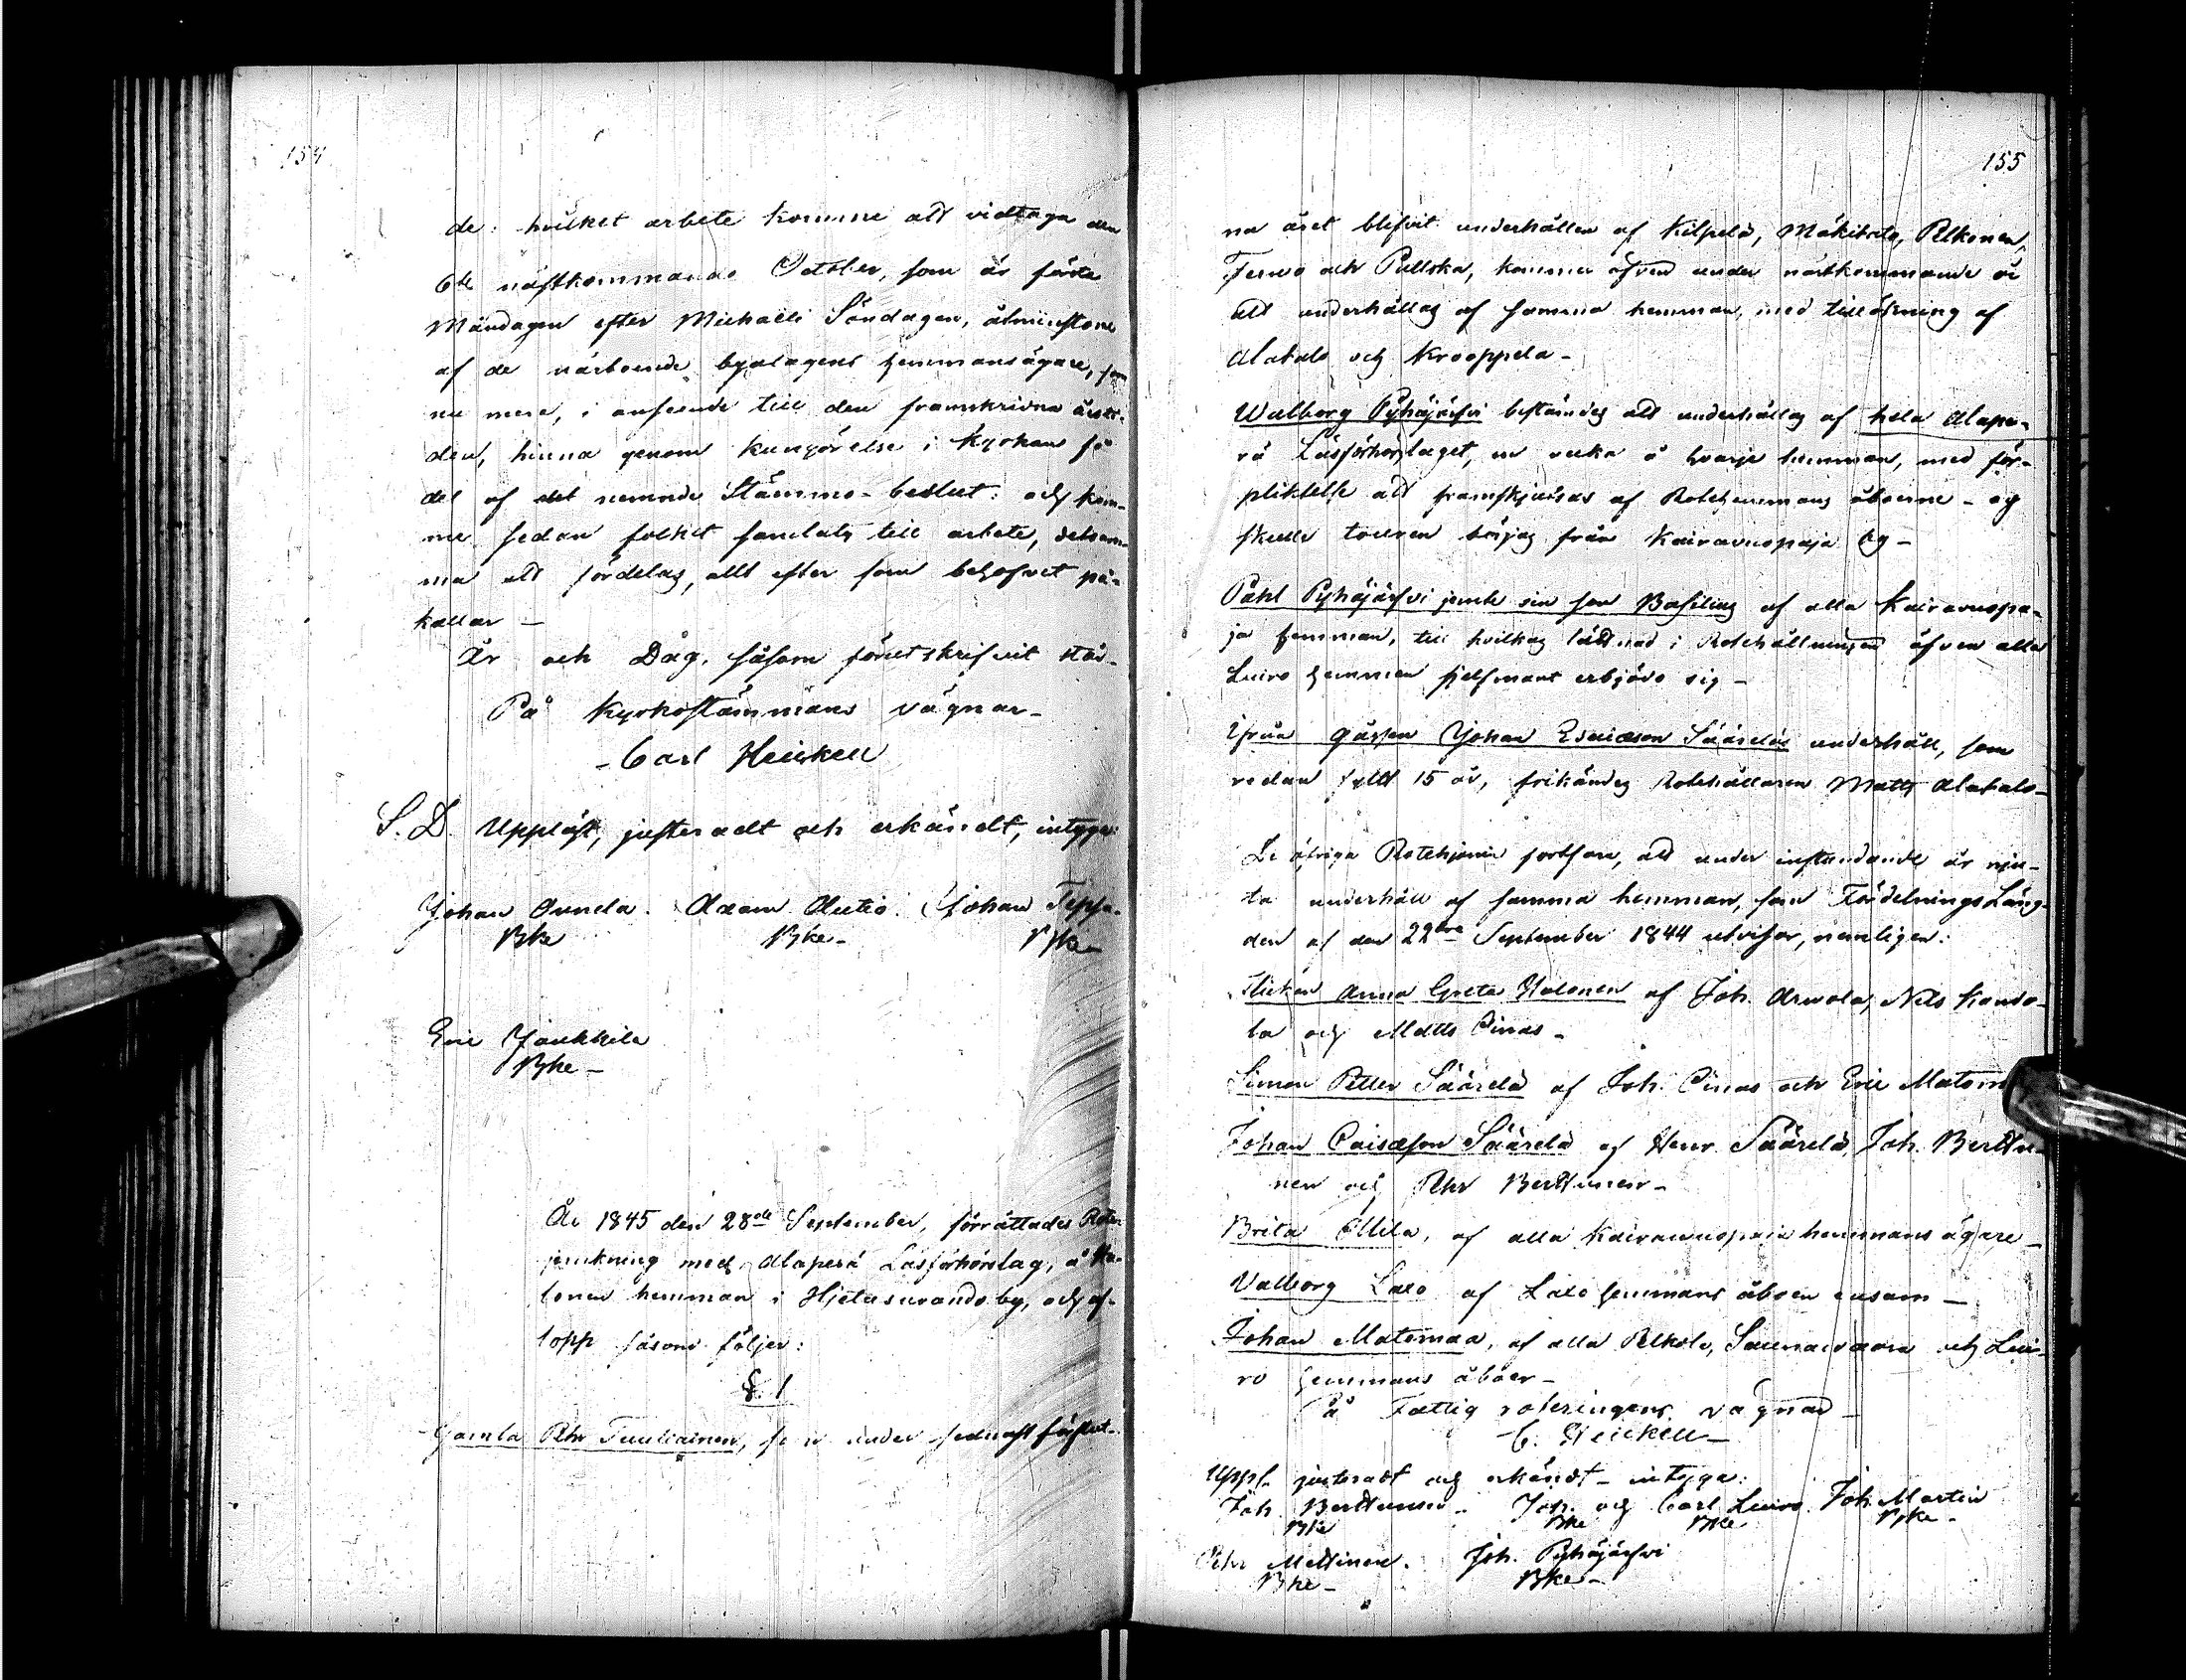 154
de: hvilket arbete komme att vidtaga den
6te nästkommande October, som är första
Måndagen efter Michaeli Söndagen, åtminstone
af de närboende byalagens hemmansägare, som
nu mera, i anseende till den framskridna årsti-
den, hinna genom kungörelse i kyrkan få
del af det nemnde Stämmo-beslut: och kom-
me sedan folket samlats till arbete, detsam-
ma att fördelas, allt efter som behofvet på-
kallar —
År och Dag, såsom förut skrifvit står.
På Kyrkostämmans vägnar —
Carl Heickell
S. D. Uppläst, justeradt och erkändt, intyga:
Johan Onnela. Adam Autio. Johan Teppo.
Bke Bke — Bke —
Eric Jaukkila
Bke —
År 1845 den 28de September, förrättades Rote-
jemkning med Alaperä Läsförhörslag, å Ha-
lonen hemman i Hjetasuvando by, och af-
lopp såsom följer:
§. 1
Gamla Pehr Tuuliainen, som under sednast förflut-
155
na året blifvit underhållen af Kilpelä, Mäkitalo, Pelkonen,
Tervo och Pullska, kommer äfven under nästkommande år
att underhållas af samma hemman, med tillökning af
Alatalo och Krooppela —
Walborg Pyhäjärfvi bestämdes att underhållas af hela Alape-
rä Läsförhörslaget, en vecka å hvarje hemman, med för-
pliktelse att framskjutsas af Rotehemmans åboerne — och
skulle touren börjas från Kairavuopaja by —
Påhl Pyhäjärfvi jemte sin son Basilius af alla Kairavuopa-
ja hemman, till hvilkas lättnad i Rotehållningen äfven alla
Luiro hemman sjelfmant erbjödo sig —
Ifrån gåssen Johan Esaiæson Säärelä's underhåll, som
redan fyllt 15 år, frikändes Rotehållaren Matts Alatalo —
De öfriga Rotehjonen fortfara, att under instundande år nju-
ta underhåll af samma hemman, som Fördelnings Läng-
den af den 22dra September 1844 utvisar, nemligen:
Flickan Anna Greta Halonen af Joh. Arvola, Nils Kando-
la och Matts Pinas —
Simon Petter Säärelä af Joh. Pinas och Eric Matom
Johan Esaiæson Säärelä af Henr. Säärelä, Joh. Berttu-
nen och Pehr Berttunen —
Brita Ollila, af alla Kairavuopaja hemmans ägare —
Valborg Laxo af Laxo hemmans åboen ensam —
Johan Matomaa, af alla Pelkola, Saunavaara och Lui-
ro hemmans åboer —
På Fattig roteringens vägnar —
C. Heickell —
Uppl. justeradt och erkändt — intyga:
Joh. Berttunen — Joh. och Carl Luiro. Joh. Martin
Bke Bke Bke Bke —
Pehr Mettinen. Joh. Pyhäjärfvi
Bke — Bke —